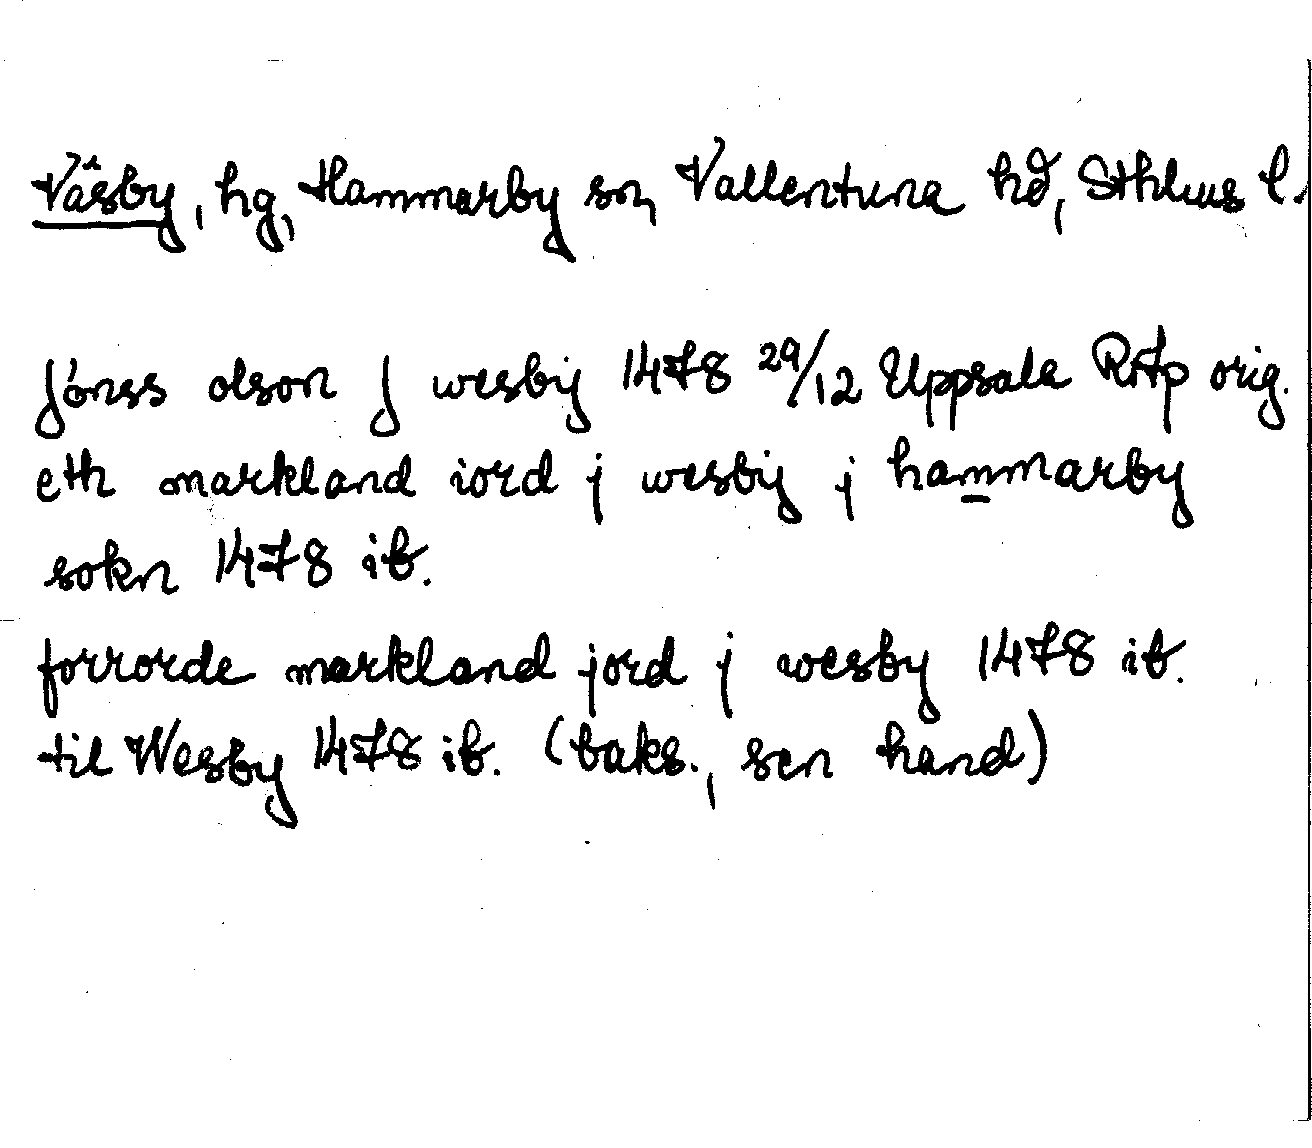 Väsby, hg, Hammarby sn, Vallentuna hd, Sthlms l.
Jönss olson J wesbÿ 1478 29/12 Uppsala RAp orig.
eth markland iord j wesbÿ j hammarby
sokn 1478 ib.
forrorde markland jord j wesby 1478 ib.
til Wesby 1478 ib. (baks., sen hand)